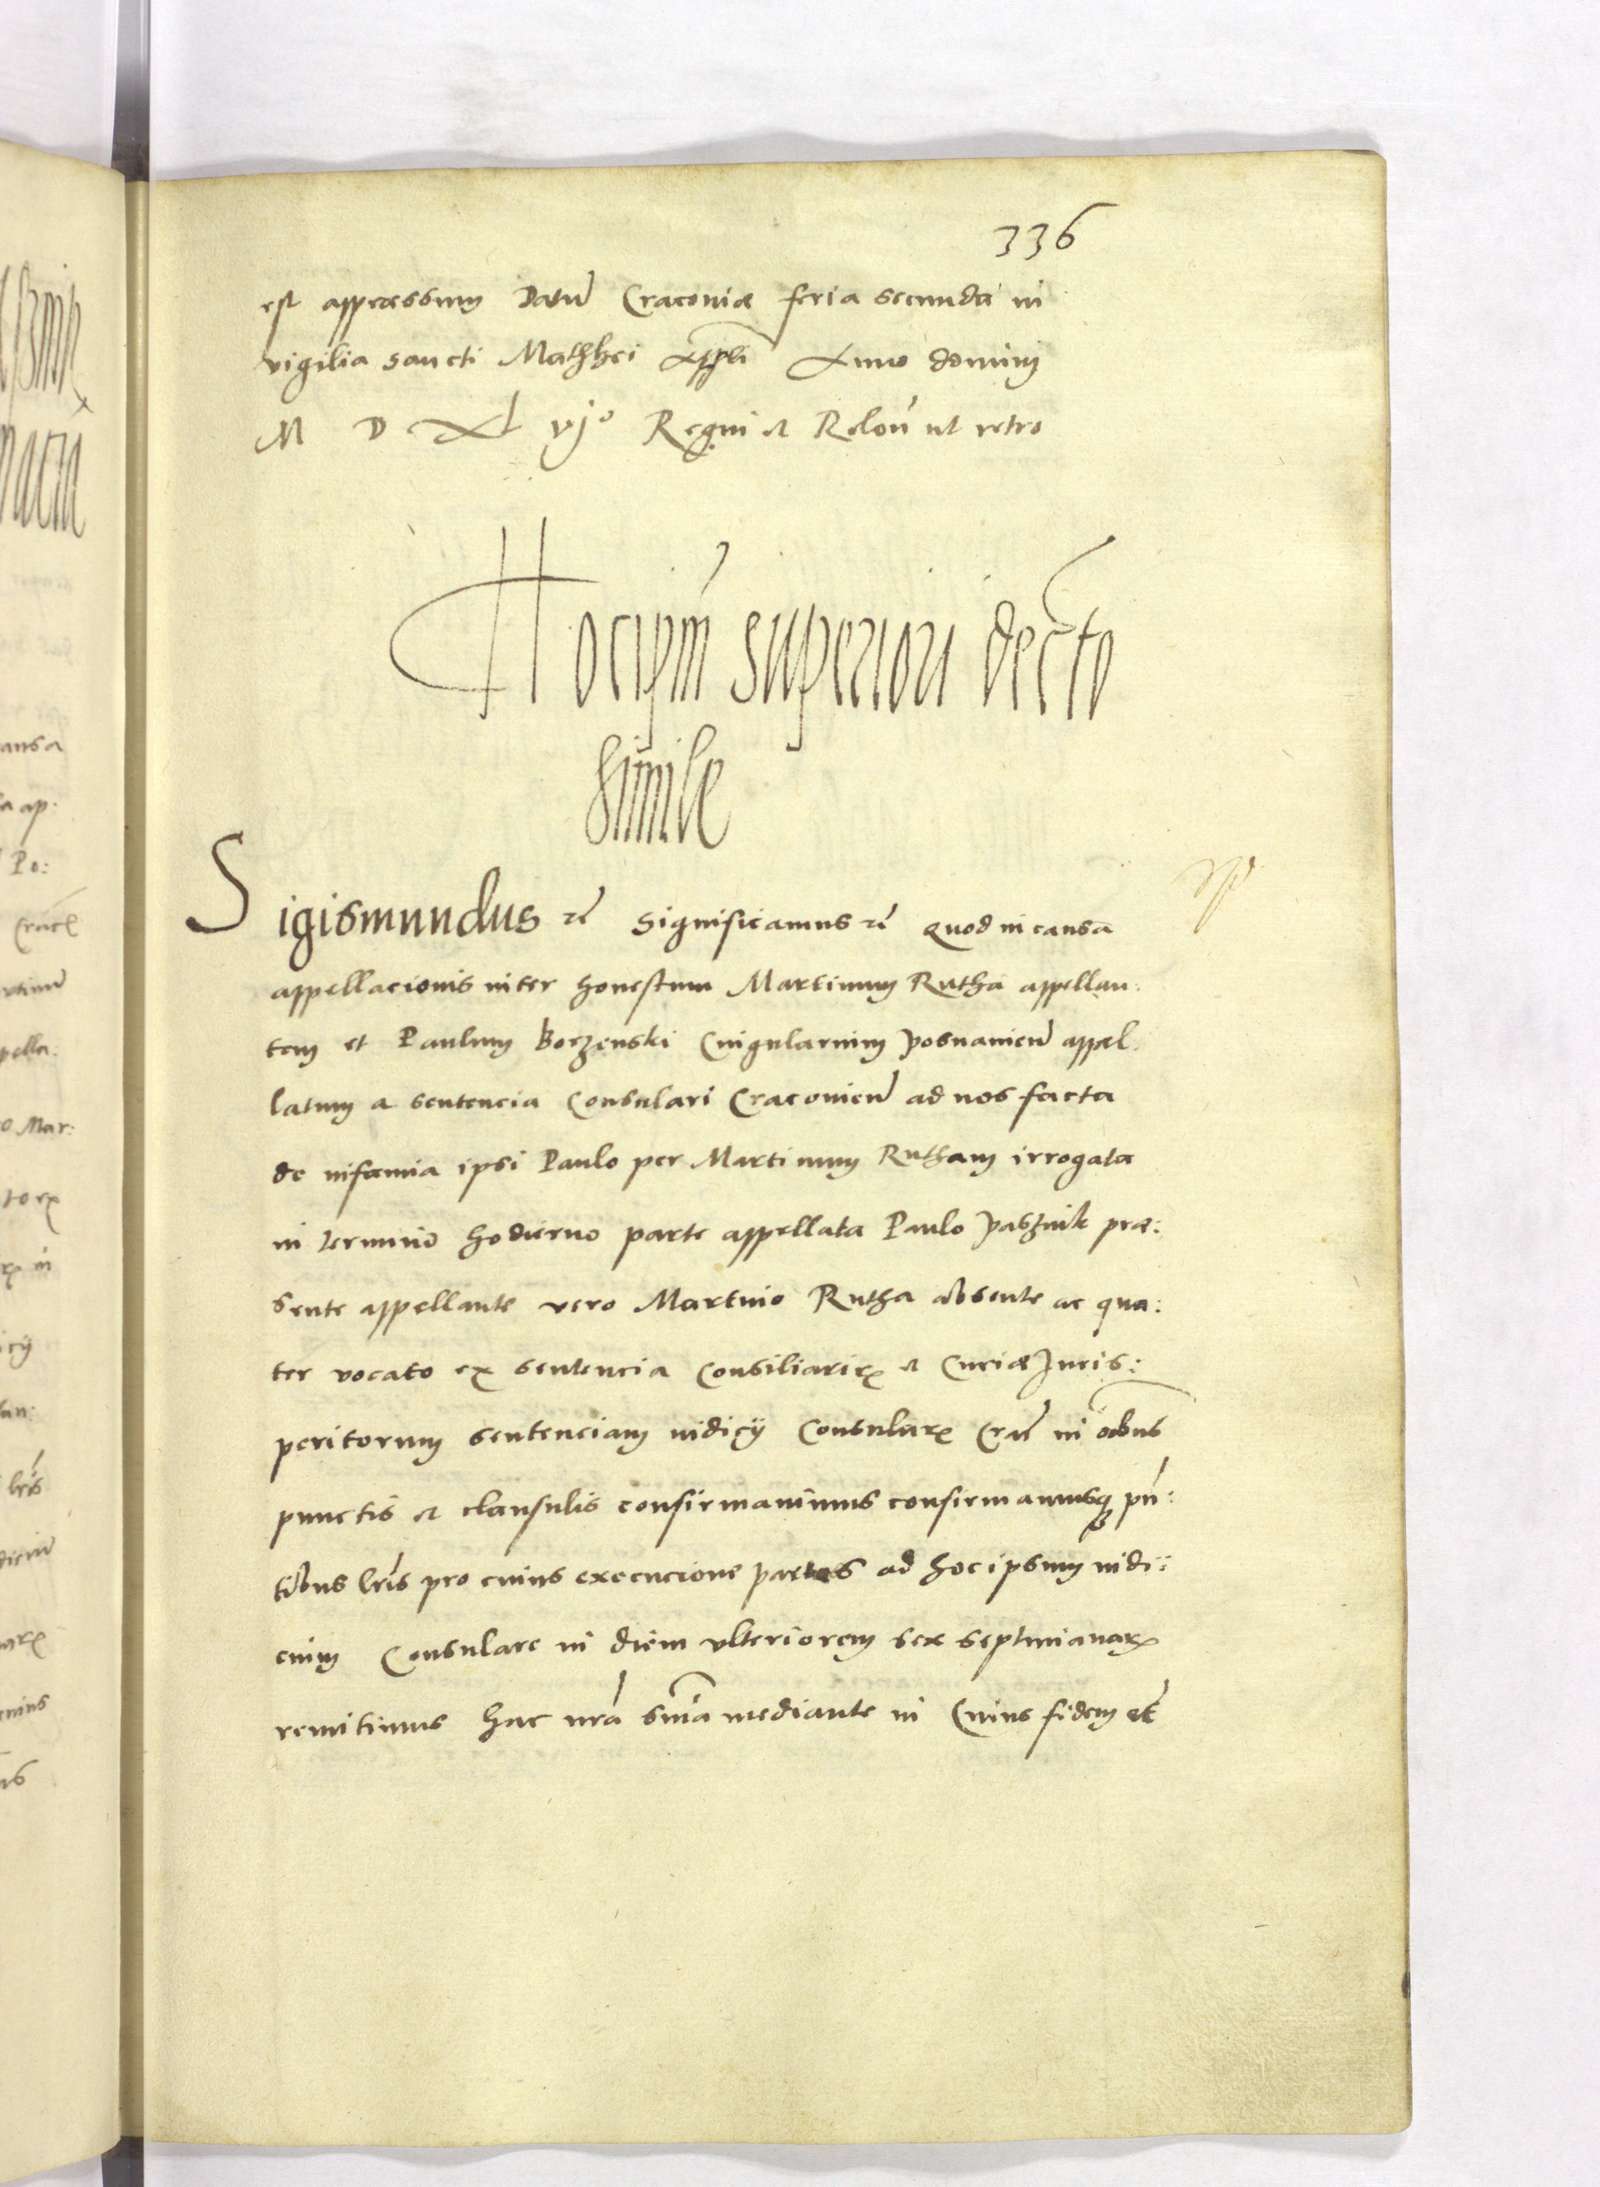 336
est appræssum Datum̃ Cracoviæ feria secunda in
vigilia sancti Mathhei Appli Anno dominj
M D XL vjº Regni et Reloñ ut retro
Hoc ipm̃ superiori decr̃to
simile
Sigismundus etc̃ Significamus etc̃ Quod in causa
appellacionis inter honestum Martinum Rutha appellan:
tem et Paulum Borzenski Cingularium Posnanieñ appel
latum a sentencia Consulari Cracovieñ ad nos facta
de infamia ipsi Paulo per Martinum Rutham irrogata
in termino hodierno parte appellata Paulo Paszink præ:
sente appellante vero Martino Rutha absente ac qua:
ter vocato ex sentencia Consiliarioꝝ et Curiæ Juris:
peritorum sentenciam iudicÿ Consulariꝝ Crac̃ in õibus
punctis et clausulis confirmavimus confirmamusqꝫ pñ:
tibus lr̃is pro cuius execucione partes ad hoc ipsum iudi:
cium Consulare in diem ulteriorem sex septimanaꝝ
remitimus hac nr̃a sñia mediante in Cuius fidem etc̃